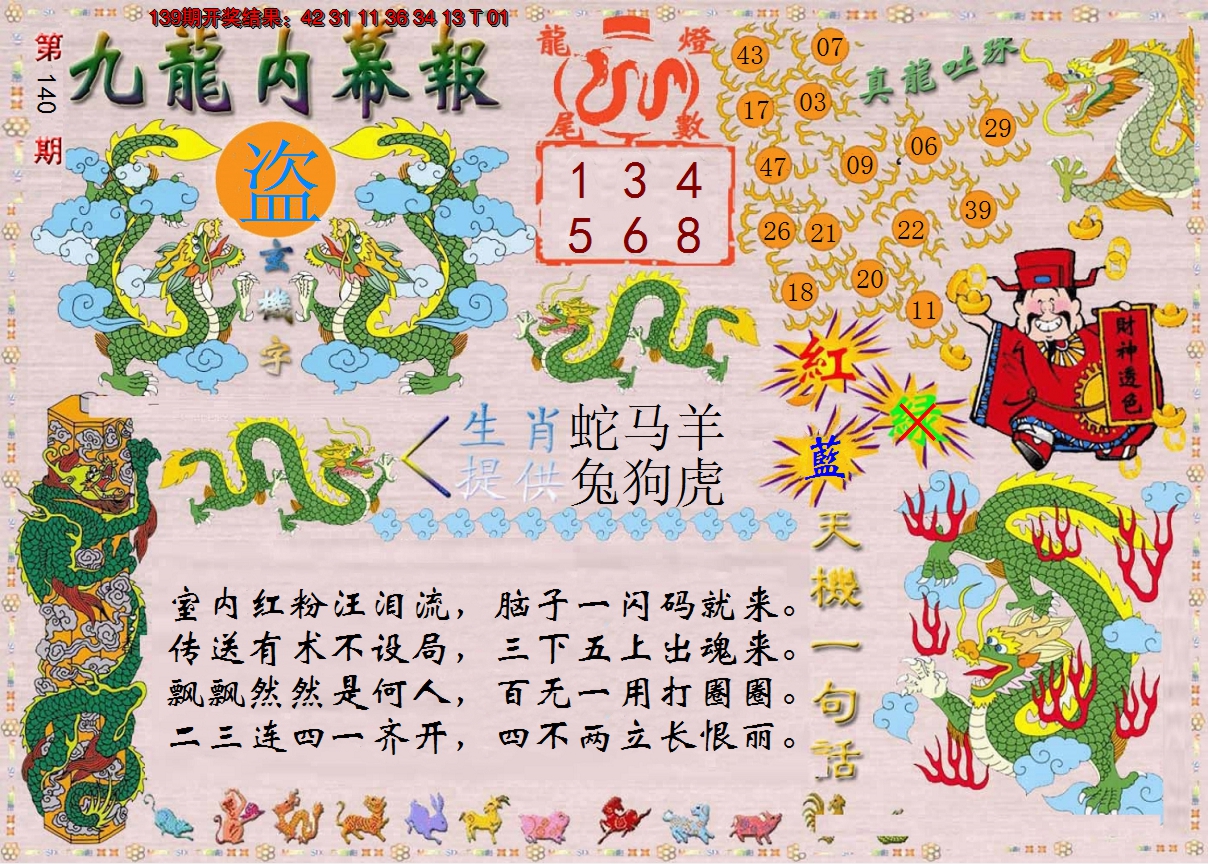 139期开奖结果：42 31 11 36 34 13 T 01
第140期
九龍内幕報
盗
玄機字
龍燈
尾數
1 3 4
5 6 8
真龍吐珠
43 07
17 03
06 29
47 09
39
26 21 22
18 20
11
紅
绿
藍
財神透色
生肖 蛇马羊
提供 兔狗虎
室内红粉汪泪流，脑子一闪码就来。
传送有术不设局，三下五上出魂来。
飘飘然然是何人，百无一用打圈圈。
二三连四一齐开，四不两立长恨丽。
天機一句話